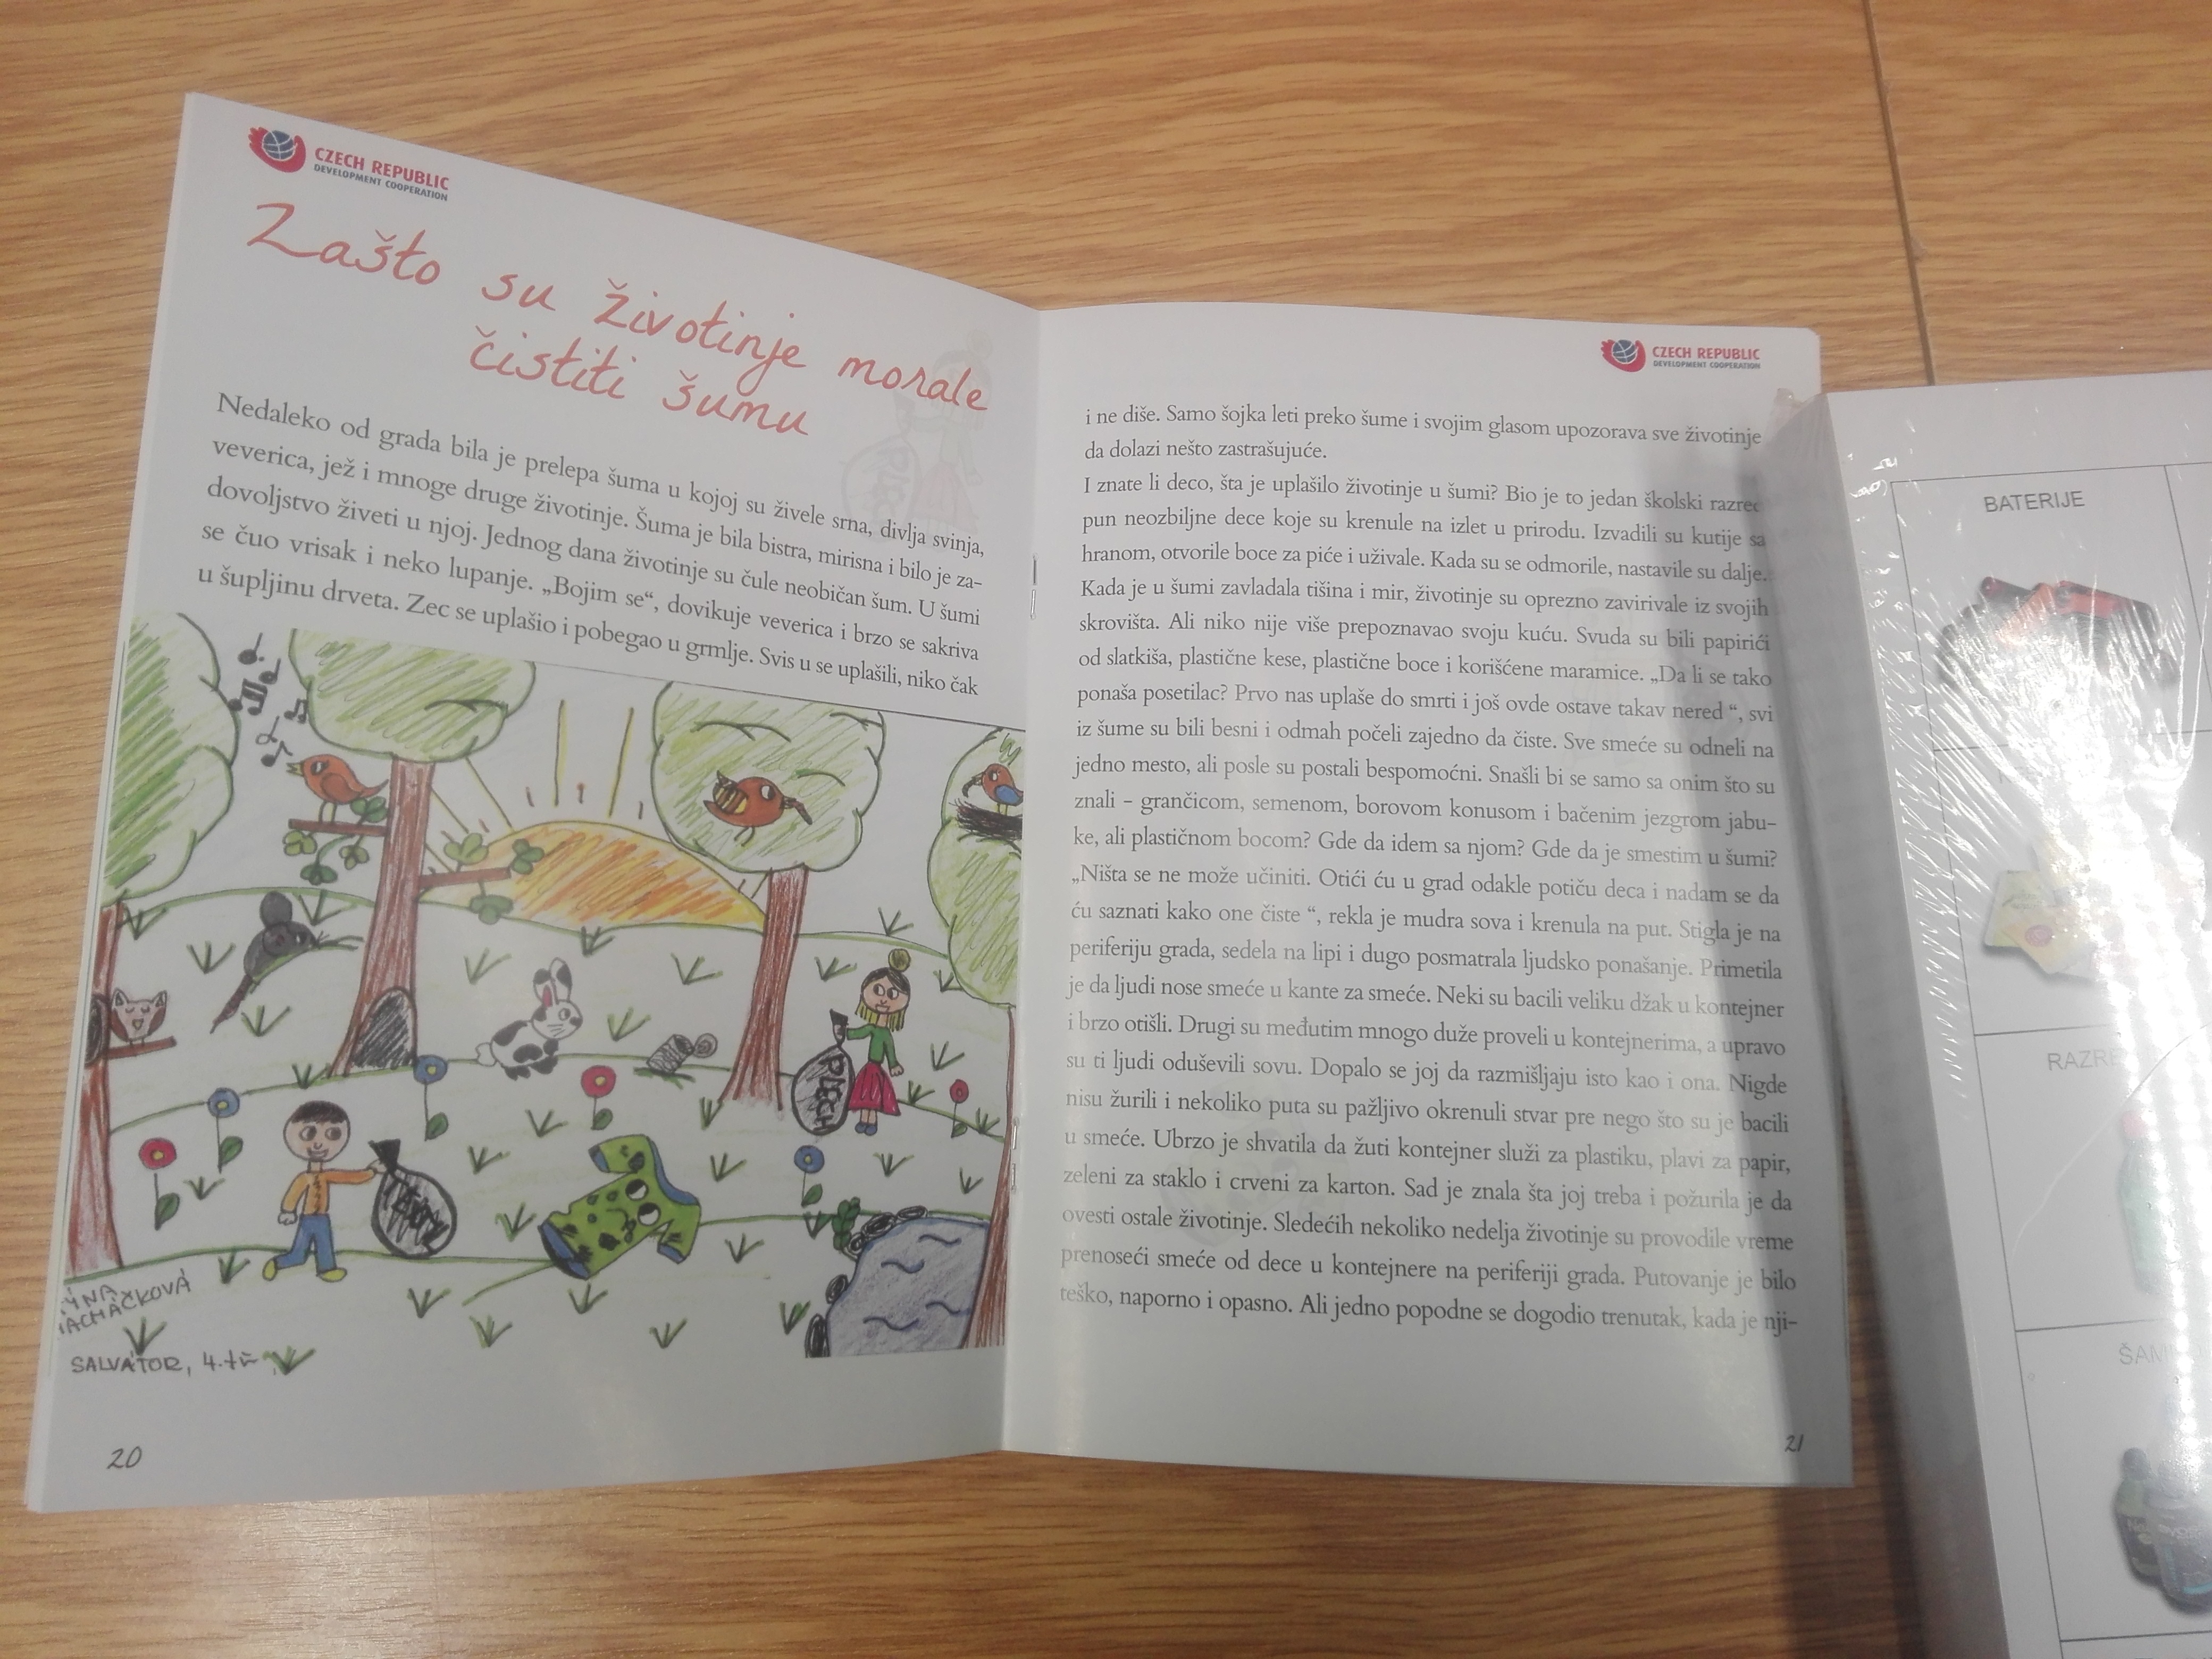 CZECH REPUBLIC
DEVELOPMENT COOPERATION
Zašto su životinje morale
čistiti šumu
Nedaleko od grada bila je prelepa šuma u kojoj su živele srna, divlja svinja,
veverica, jež i mnoge druge životinje. Šuma je bila bistra, mirisna i bilo je za-
dovoljstvo živeti u njoj. Jednog dana životinje su čule neobičan šum. U šumi
se čuo vrisak i neko lupanje. „Bojim se“, dovikuje veverica i brzo se sakriva
u šupljinu drveta. Zec se uplašio i pobegao u grmlje. Svis u se uplašili, niko čak
PLECH
SALVÁTOR, 4.
20
CZECH REPUBLIC
DEVELOPMENT COOPERATION
i ne diše. Samo šojka leti preko šume i svojim glasom upozorava sve životinje
da dolazi nešto zastrašujuće.
I znate li deco, šta je uplašilo životinje u šumi? Bio je to jedan školski razred
pun neozbiljne dece koje su krenule na izlet u prirodu. Izvadili su kutije sa
hranom, otvorile boce za piće i uživale. Kada su se odmorile, nastavile su dalje.
Kada je u šumi zavladala tišina i mir, životinje su oprezno zavirivale iz svojih
skrovišta. Ali niko nije više prepoznavao svoju kuću. Svuda su bili papirići
od slatkiša, plastične kese, plastične boce i korišćene maramice. „Da li se tako
ponaša posetilac? Prvo nas uplaše do smrti i još ovde ostave takav nered “, svi
iz šume su bili besni i odmah počeli zajedno da čiste. Sve smeće su odneli na
jedno mesto, ali posle su postali bespomoćni. Snašli bi se samo sa onim što su
znali – grančicom, semenom, borovom konusom i bačenim jezgrom jabu-
ke, ali plastičnom bocom? Gde da idem sa njom? Gde da je smestim u šumi?
„Ništa se ne može učiniti. Otići ću u grad odakle potiču deca i nadam se da
ću saznati kako one čiste “, rekla je mudra sova i krenula na put. Stigla je na
periferiju grada, sedela na lipi i dugo posmatrala ljudsko ponašanje. Primetila
je da ljudi nose smeće u kante za smeće. Neki su bacili veliku džak u kontejner
i brzo otišli. Drugi su međutim mnogo duže proveli u kontejnerima, a upravo
su ti ljudi oduševili sovu. Dopalo se joj da razmišljaju isto kao i ona. Nigde
nisu žurili i nekoliko puta su pažljivo okrenuli stvar pre nego što su je bacili
u smeće. Ubrzo je shvatila da žuti kontejner služi za plastiku, plavi za papir,
zeleni za staklo i crveni za karton. Sad je znala šta joj treba i požurila je da
ovesti ostale životinje. Sledećih nekoliko nedelja životinje su provodile vreme
prenoseći smeće od dece u kontejnere na periferiji grada. Putovanje je bilo
teško, naporno i opasno. Ali jedno popodne se dogodio trenutak, kada je nji-
21
BATERIJE